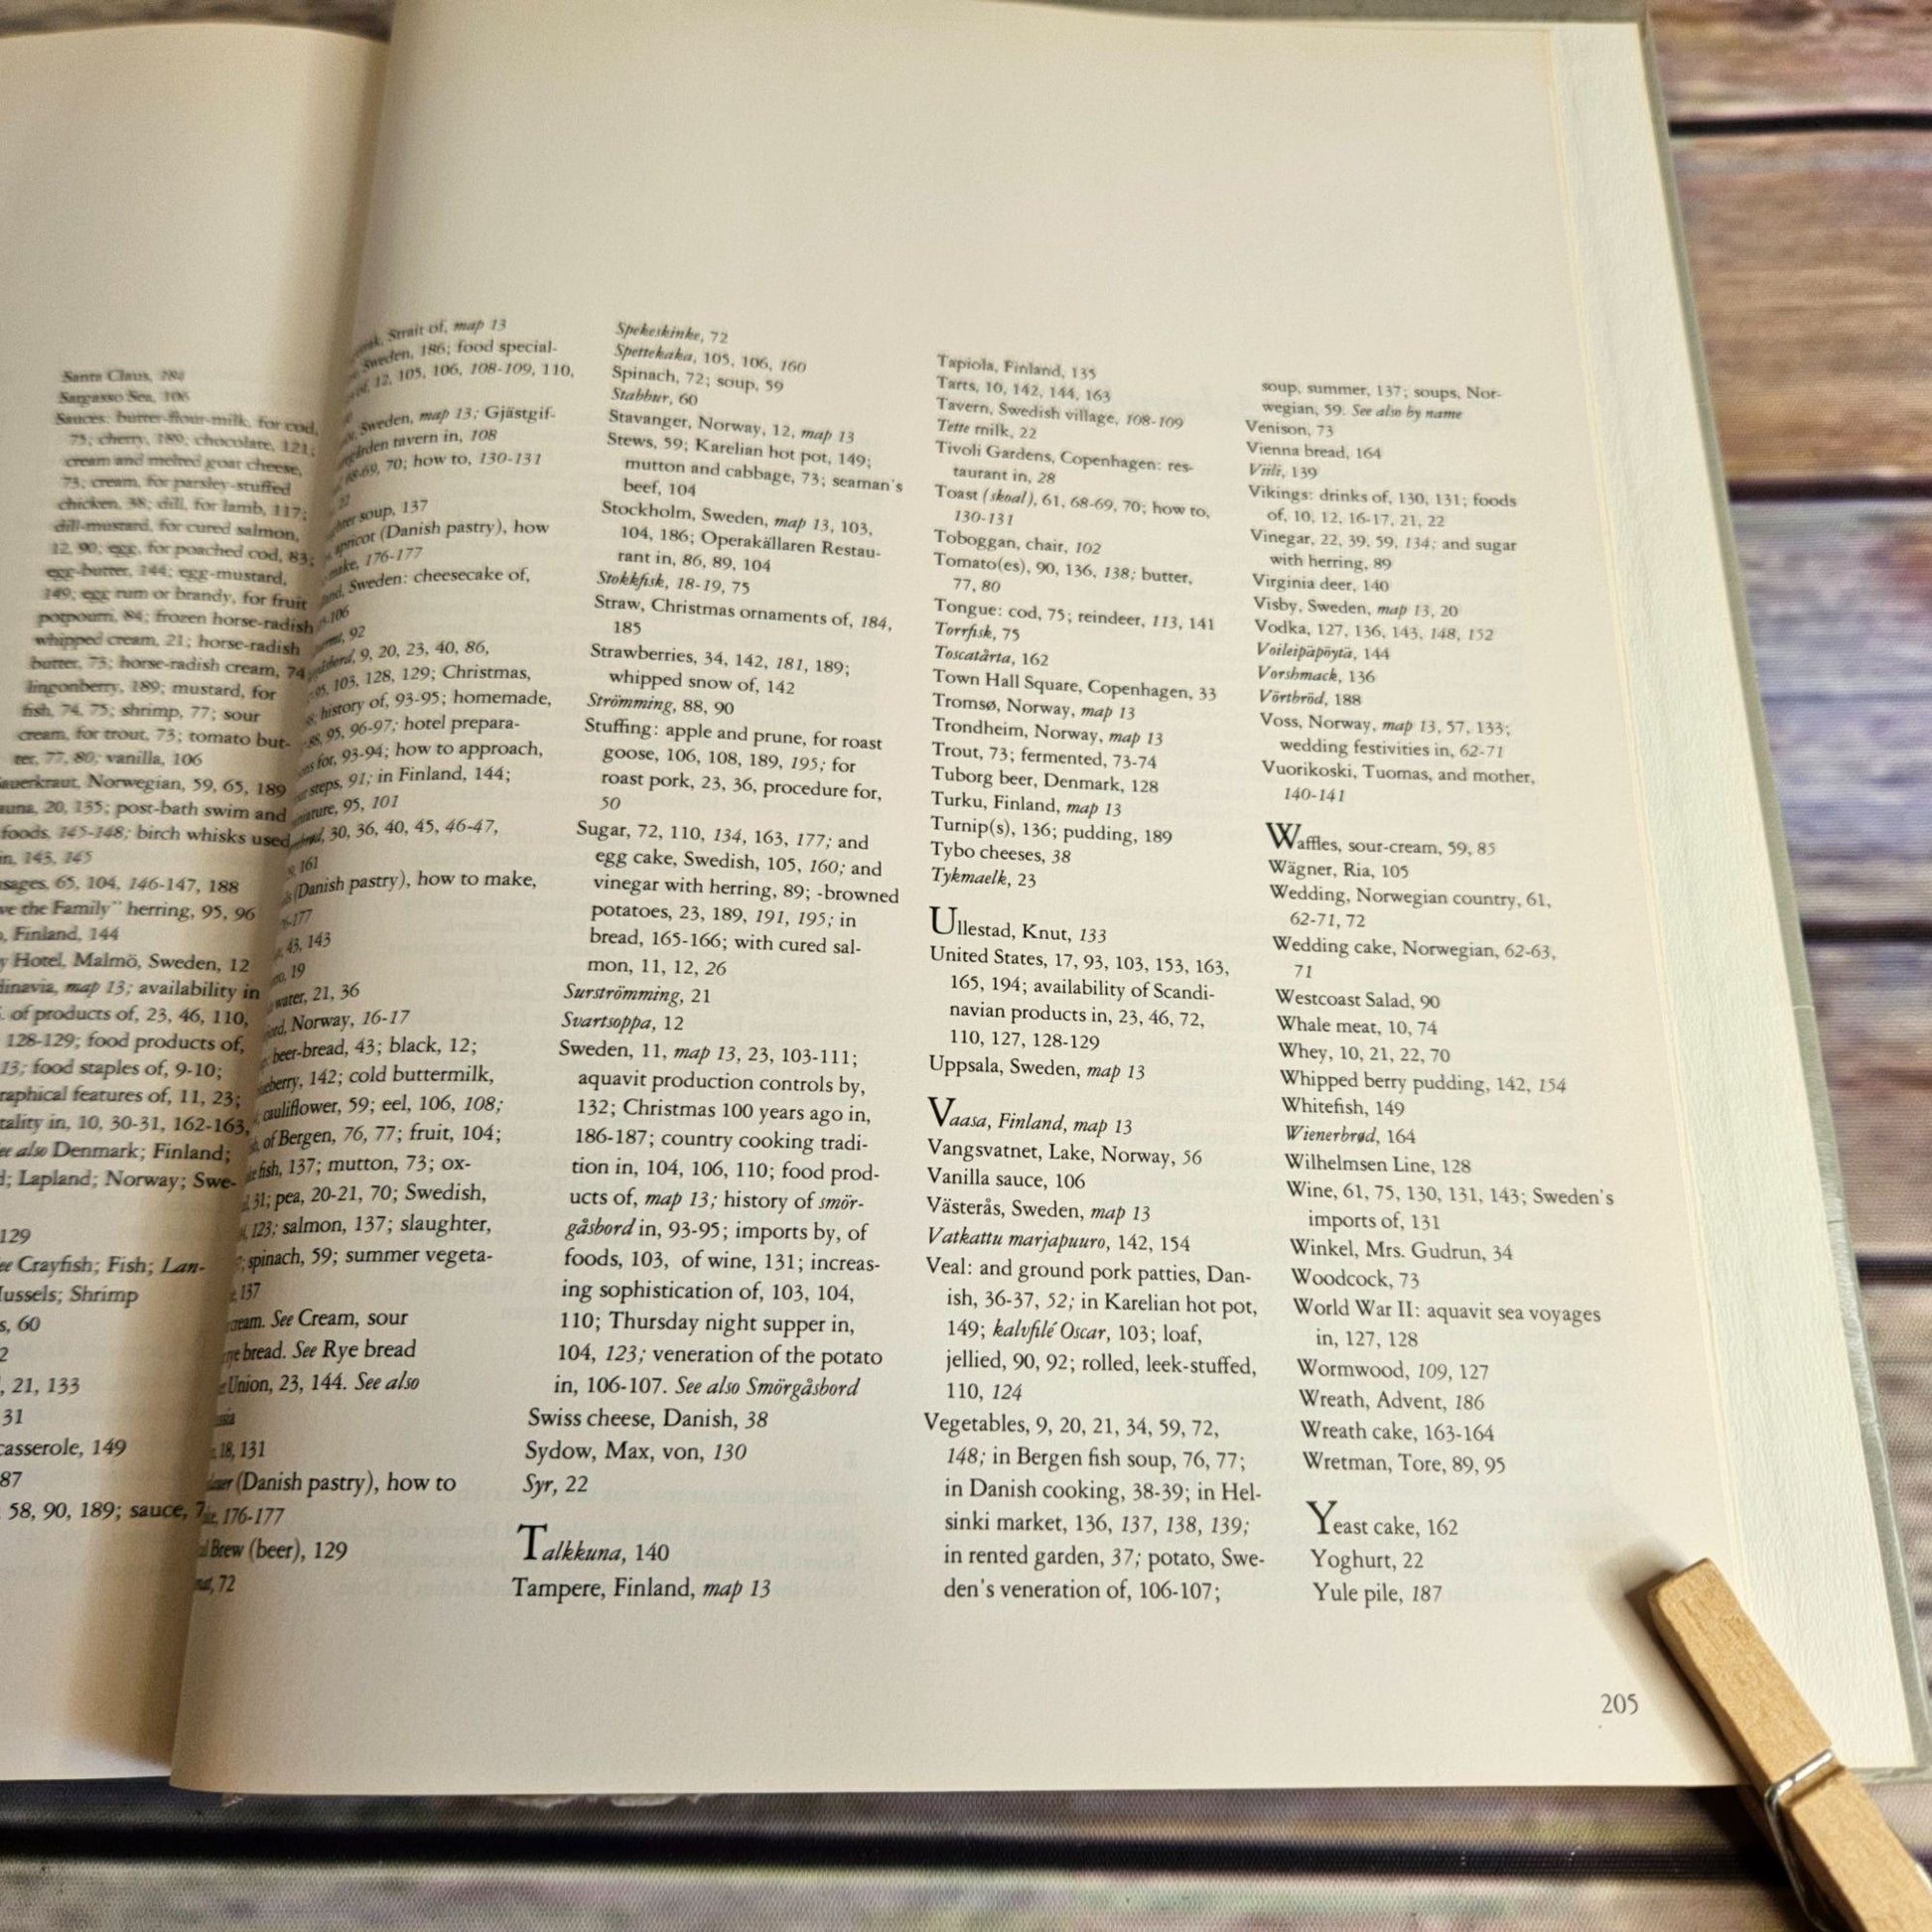 Santa Claus, 186
Sargasso Sea, 106
Sauces: butter-flour-milk, for cod,
75; cherry, 189; chocolate, 121;
cream and melted goat cheese,
73; cream, for parsley-stuffed
chicken, 38; dill, for lamb, 117;
dill-mustard, for cured salmon,
12, 90; egg, for poached cod, 83;
egg-butter, 144; egg-mustard,
149; egg rum or brandy, for fruit
potpourri, 84; frozen horse-radish
whipped cream, 21; horse-radish
butter, 73; horse-radish cream, 74
lingonberry, 189; mustard, for
fish, 74, 75; shrimp, 77; sour
cream, for trout, 73; tomato but-
ter, 77, 80; vanilla, 106
Norwegian, 59, 65, 189
20, 135; post-bath swim and
foods, 145-148; birch whisks used
in, 143, 145
65, 104, 146-147, 188
the Family" herring, 95, 96
Finland, 144
Hotel, Malmö, Sweden, 12
map 13; availability in
of products of, 23, 46, 110,
128-129; food products of,
13; food staples of, 9-10;
features of, 11, 23;
in, 10, 30-31, 162-163,
also Denmark; Finland;
Lapland; Norway; Swe-
129
Crayfish; Fish; Lan-
Shrimp
60
21, 133
31
casserole, 149
87
58, 90, 189; sauce,
Strait of, map 13
Sweden, 186; food special-
12, 105, 106, 108-109, 110,
Sweden, map 13; Gjästgif-
tavern in, 108
70; how to, 130-131
soup, 137
apricot (Danish pastry), how
make, 176-177
Sweden: cheesecake of,
92
9, 20, 23, 40, 86,
103, 128, 129; Christmas,
history of, 93-95; homemade,
95, 96-97; hotel prepara-
for, 93-94; how to approach,
steps, 91; in Finland, 144;
95, 101
30, 36, 40, 45, 46-47,
161
(Danish pastry), how to make,
43, 143
19
water, 21, 36
Norway, 16-17
beer-bread, 43; black, 12;
142; cold buttermilk,
cauliflower, 59; eel, 106, 108;
of Bergen, 76, 77; fruit, 104;
fish, 137; mutton, 73; ox-
31; pea, 20-21, 70; Swedish,
123; salmon, 137; slaughter,
spinach, 59; summer vegeta-
137
See Cream, sour
bread. See Rye bread
Union, 23, 144. See also
18, 131
(Danish pastry), how to
176-177
Brew (beer), 129
72
Spekeskinke, 72
Spettekaka, 105, 106, 160
Spinach, 72; soup, 59
Stabbur, 60
Stavanger, Norway, 12, map 13
Stews, 59; Karelian hot pot, 149;
mutton and cabbage, 73; seaman's
beef, 104
Stockholm, Sweden, map 13, 103,
104, 186; Operakällaren Restau-
rant in, 86, 89, 104
Stokkfisk, 18-19, 75
Straw, Christmas ornaments of, 184,
185
Strawberries, 34, 142, 181, 189;
whipped snow of, 142
Strömming, 88, 90
Stuffing: apple and prune, for roast
goose, 106, 108, 189, 195; for
roast pork, 23, 36, procedure for,
50
Sugar, 72, 110, 134, 163, 177; and
egg cake, Swedish, 105, 160; and
vinegar with herring, 89; -browned
potatoes, 23, 189, 191, 195; in
bread, 165-166; with cured sal-
mon, 11, 12, 26
Surströmming, 21
Svartsoppa, 12
Sweden, 11, map 13, 23, 103-111;
aquavit production controls by,
132; Christmas 100 years ago in,
186-187; country cooking tradi-
tion in, 104, 106, 110; food prod-
ucts of, map 13; history of smör-
gåsbord in, 93-95; imports by, of
foods, 103, of wine, 131; increas-
ing sophistication of, 103, 104,
110; Thursday night supper in,
104, 123; veneration of the potato
in, 106-107. See also Smörgåsbord
Swiss cheese, Danish, 38
Sydow, Max, von, 130
Syr, 22
Talkkuna, 140
Tampere, Finland, map 13
Tapiola, Finland, 135
Tarts, 10, 142, 144, 163
Tavern, Swedish village, 108-109
Tette milk, 22
Tivoli Gardens, Copenhagen: res-
taurant in, 28
Toast (skoal), 61, 68-69, 70; how to,
130-131
Toboggan, chair, 102
Tomato(es), 90, 136, 138; butter,
77, 80
Tongue: cod, 75; reindeer, 113, 141
Torrfisk, 75
Toscatårta, 162
Town Hall Square, Copenhagen, 33
Tromsø, Norway, map 13
Trondheim, Norway, map 13
Trout, 73; fermented, 73-74
Tuborg beer, Denmark, 128
Turku, Finland, map 13
Turnip(s), 136; pudding, 189
Tybo cheeses, 38
Tykmaelk, 23
Ullestad, Knut, 133
United States, 17, 93, 103, 153, 163,
165, 194; availability of Scandi-
navian products in, 23, 46, 72,
110, 127, 128-129
Uppsala, Sweden, map 13
Vaasa, Finland, map 13
Vangsvatnet, Lake, Norway, 56
Vanilla sauce, 106
Västerås, Sweden, map 13
Vatkattu marjapuuro, 142, 154
Veal: and ground pork patties, Dan-
ish, 36-37, 52; in Karelian hot pot,
149; kalvfilé Oscar, 103; loaf,
jellied, 90, 92; rolled, leek-stuffed,
110, 124
Vegetables, 9, 20, 21, 34, 59, 72,
148; in Bergen fish soup, 76, 77;
in Danish cooking, 38-39; in Hel-
sinki market, 136, 137, 138, 139;
in rented garden, 37; potato, Swe-
den's veneration of, 106-107;
soup, summer, 137; soups, Nor-
wegian, 59. See also by name
Venison, 73
Vienna bread, 164
Viili, 139
Vikings: drinks of, 130, 131; foods
of, 10, 12, 16-17, 21, 22
Vinegar, 22, 39, 59, 134; and sugar
with herring, 89
Virginia deer, 140
Visby, Sweden, map 13, 20
Vodka, 127, 136, 143, 148, 152
Voileipäpöytä, 144
Vorshmack, 136
Vörtbröd, 188
Voss, Norway, map 13, 57, 133;
wedding festivities in, 62-71
Vuorikoski, Tuomas, and mother,
140-141
Waffles, sour-cream, 59, 85
Wägner, Ria, 105
Wedding, Norwegian country, 61,
62-71, 72
Wedding cake, Norwegian, 62-63,
71
Westcoast Salad, 90
Whale meat, 10, 74
Whey, 10, 21, 22, 70
Whipped berry pudding, 142, 154
Whitefish, 149
Wienerbrød, 164
Wilhelmsen Line, 128
Wine, 61, 75, 130, 131, 143; Sweden's
imports of, 131
Winkel, Mrs. Gudrun, 34
Woodcock, 73
World War II: aquavit sea voyages
in, 127, 128
Wormwood, 109, 127
Wreath, Advent, 186
Wreath cake, 163-164
Wretman, Tore, 89, 95
Yeast cake, 162
Yoghurt, 22
Yule pile, 187
205